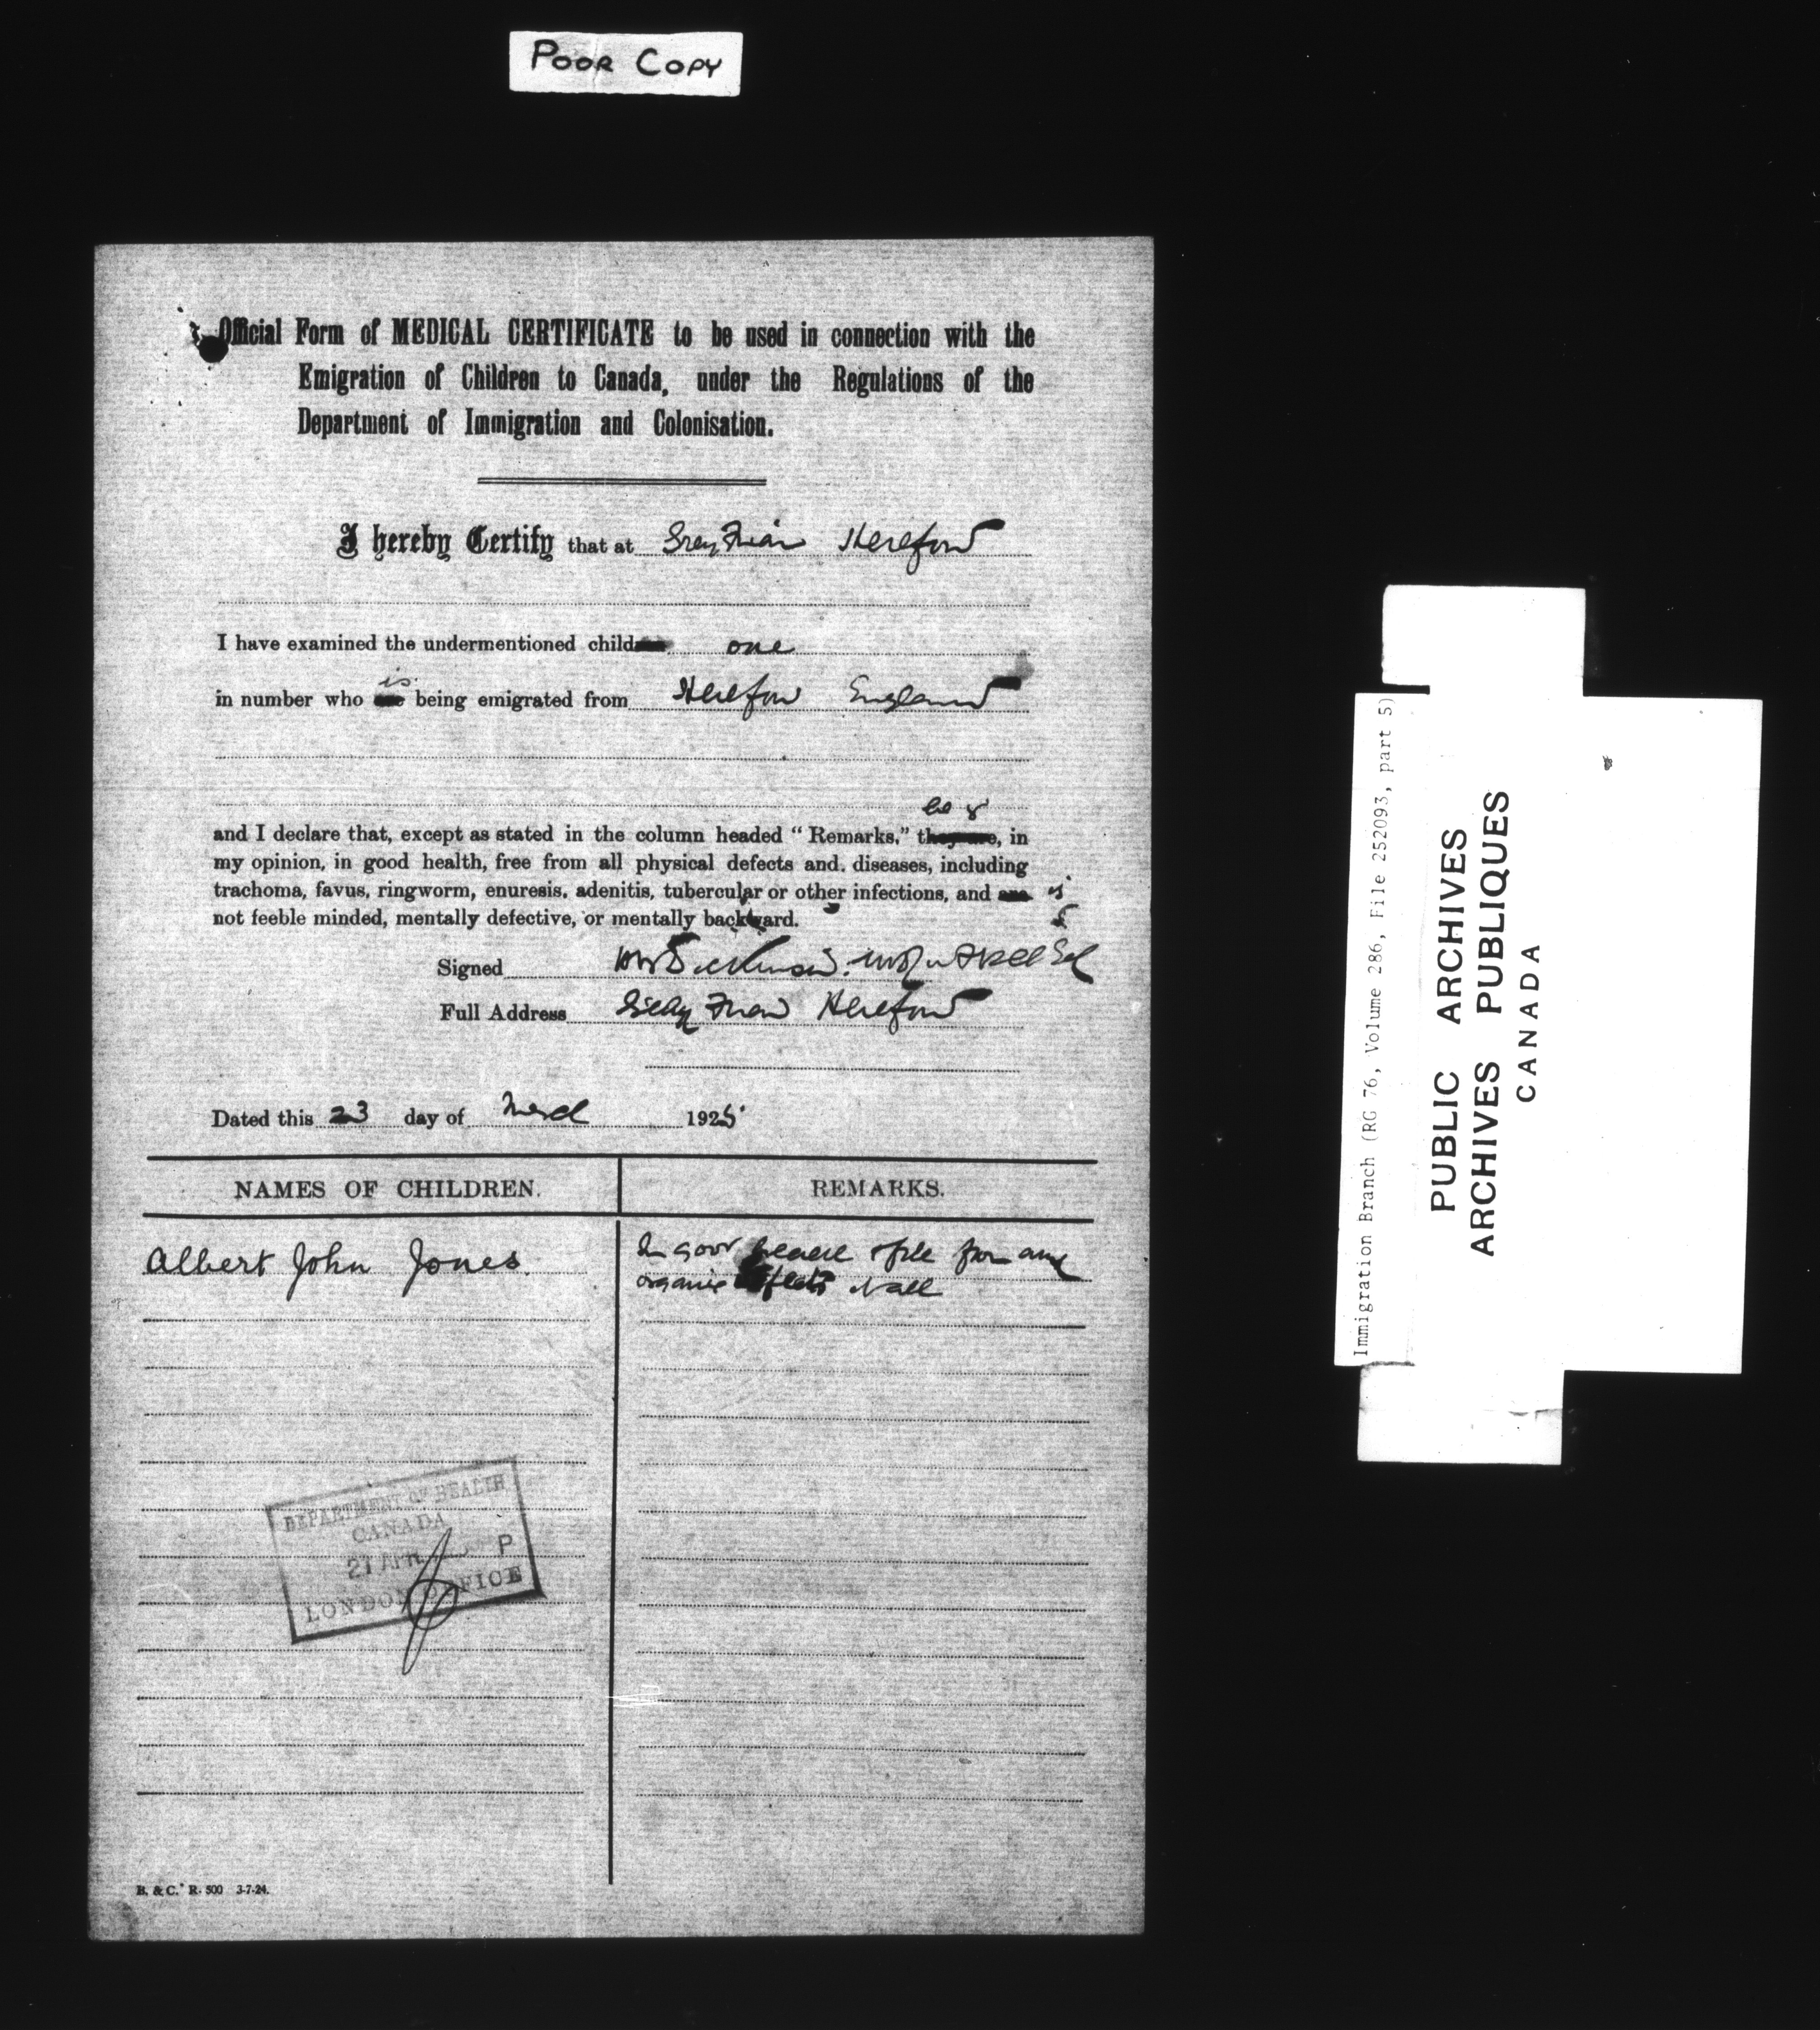 POOR COPY
Official Form of MEDICAL CERTIFICATE to be used in connection with the
Emigration of Children to Canada, under the Regulations of the
Department of Immigration and Colonisation.
I hereby Certify that at Grey Friars Hereford
I have examined the undermentioned child one
is
in number who being emigrated from Hereford England
he is
and I declare that, except as stated in the column headed "Remarks," in
my opinion, in good health, free from all physical defects and. diseases, including
trachoma, favus, ringworm, enuresis, adenitis, tubercular or other infections, and are is
not feeble minded, mentally defective, or mentally backward.
Signed
Full Address Grey Friars Hereford
Dated this 23 day of March 1925
NAMES OF CHILDREN. REMARKS.
Albert John Jones. In good free from any
organic
DEPARTMENT OF HEALTH
CANADA
21 APR P
LONDON OFFICE
B. & C. R. 500 3-7-24.
Immigration Branch (RG 76, Volume 286, File 252093, part 5)
PUBLIC ARCHIVES
ARCHIVES PUBLIQUES
CANADA